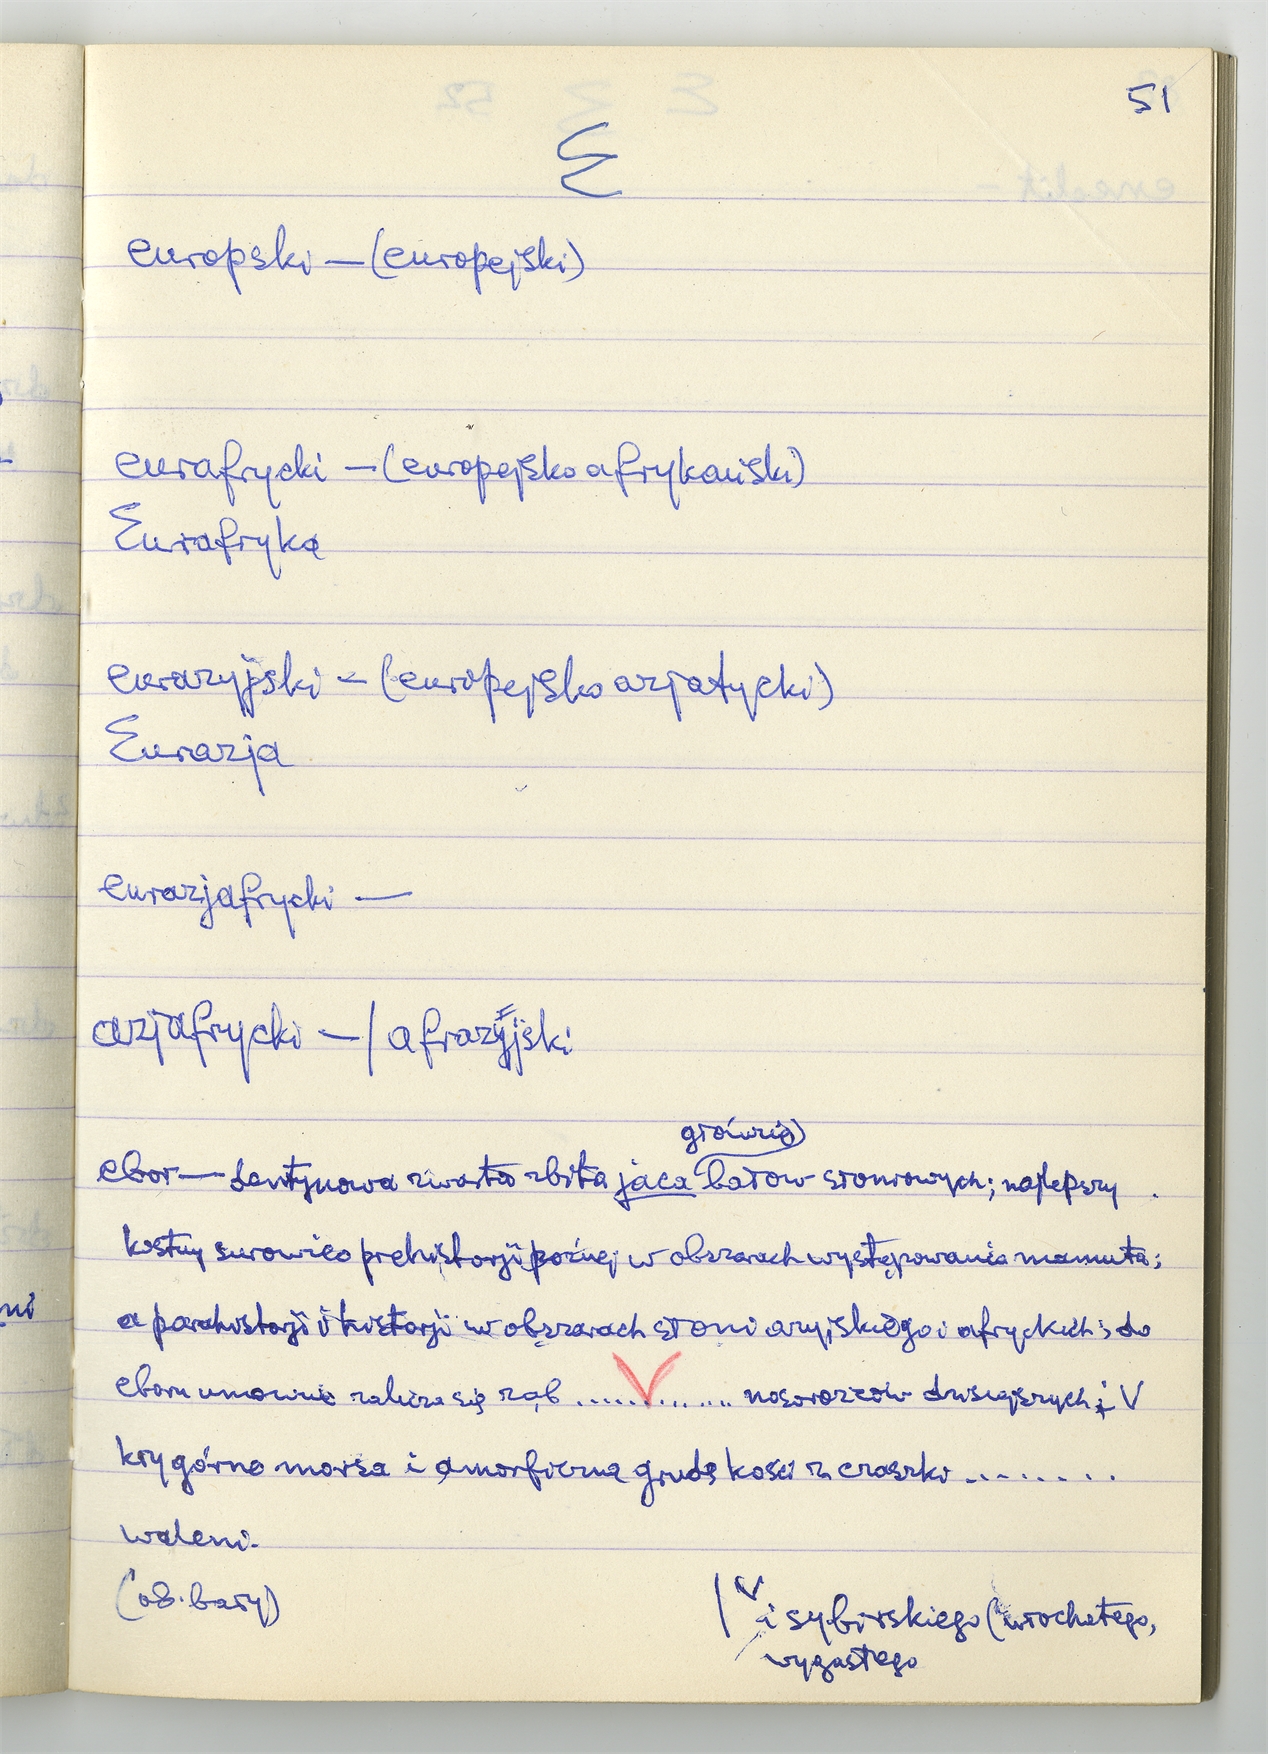 51
E
europski — (europejski)
eurafrycki — (europejsko afrykański)
Eurafryka
eurazyjski — (europejsko azjatycki)
Eurazja
eurazjafrycki —
azjafrycki — / afrazyjski
ebor — dentynowa zwarta zbita jaca batów słoniowych; najlepszy
kostny surowiec prehistorji późnej w obszarach występowania mamuta;
a parahistorji i historji w obszarach słoni azyjskiego i afryckich; do
eboru umownie zalicza się rząb ............ nosorożców dzisiejszych i V
kry górne morsa i amorficzną grudę kości z czaszki ........
waleni.
(ob. bazy)
/ V i sybirskiego (włochatego,
wygasłego